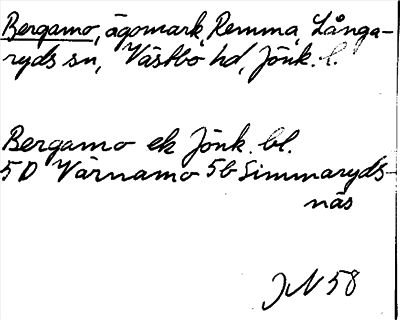 Bergamo, ägomark, Remma, Långa-
ryds sn, Västbo hd, Jönk. l.
Bergamo ek Jönk. bl.
5D Värnamo 5b Simmaryds-
näs
JN 58